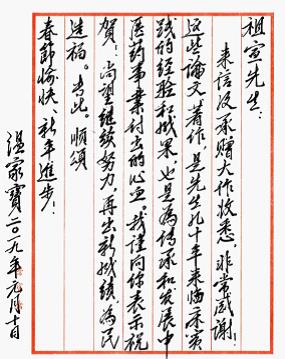 祖宣先生：
来信及承赠大作收悉，非常感谢！
这些论文著作，是先生九十年来临床实
践的经验和成果，也是为传承和发展中
医药事业付出的心血。我谨向你表示祝
贺！尚望继续努力，再出新成绩，为民
造福。专此。顺颂
春節愉快、新年進步！
温家寶二〇一九年元月十日